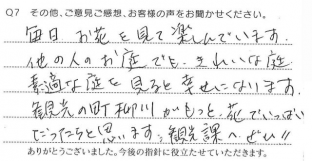 Q7 その他、ご意見ご感想、お客様の声をお聞かせください。
毎日お花を見て楽しんでいます。
他の人のお庭でも、きれいな庭
素適な庭を見ると幸せになります。
観光の町柳川がもっと、花でいっぱい
だったらと思います。観光課へぜひ!!
ありがとうございました。今後の指針に役立たせていただきます。